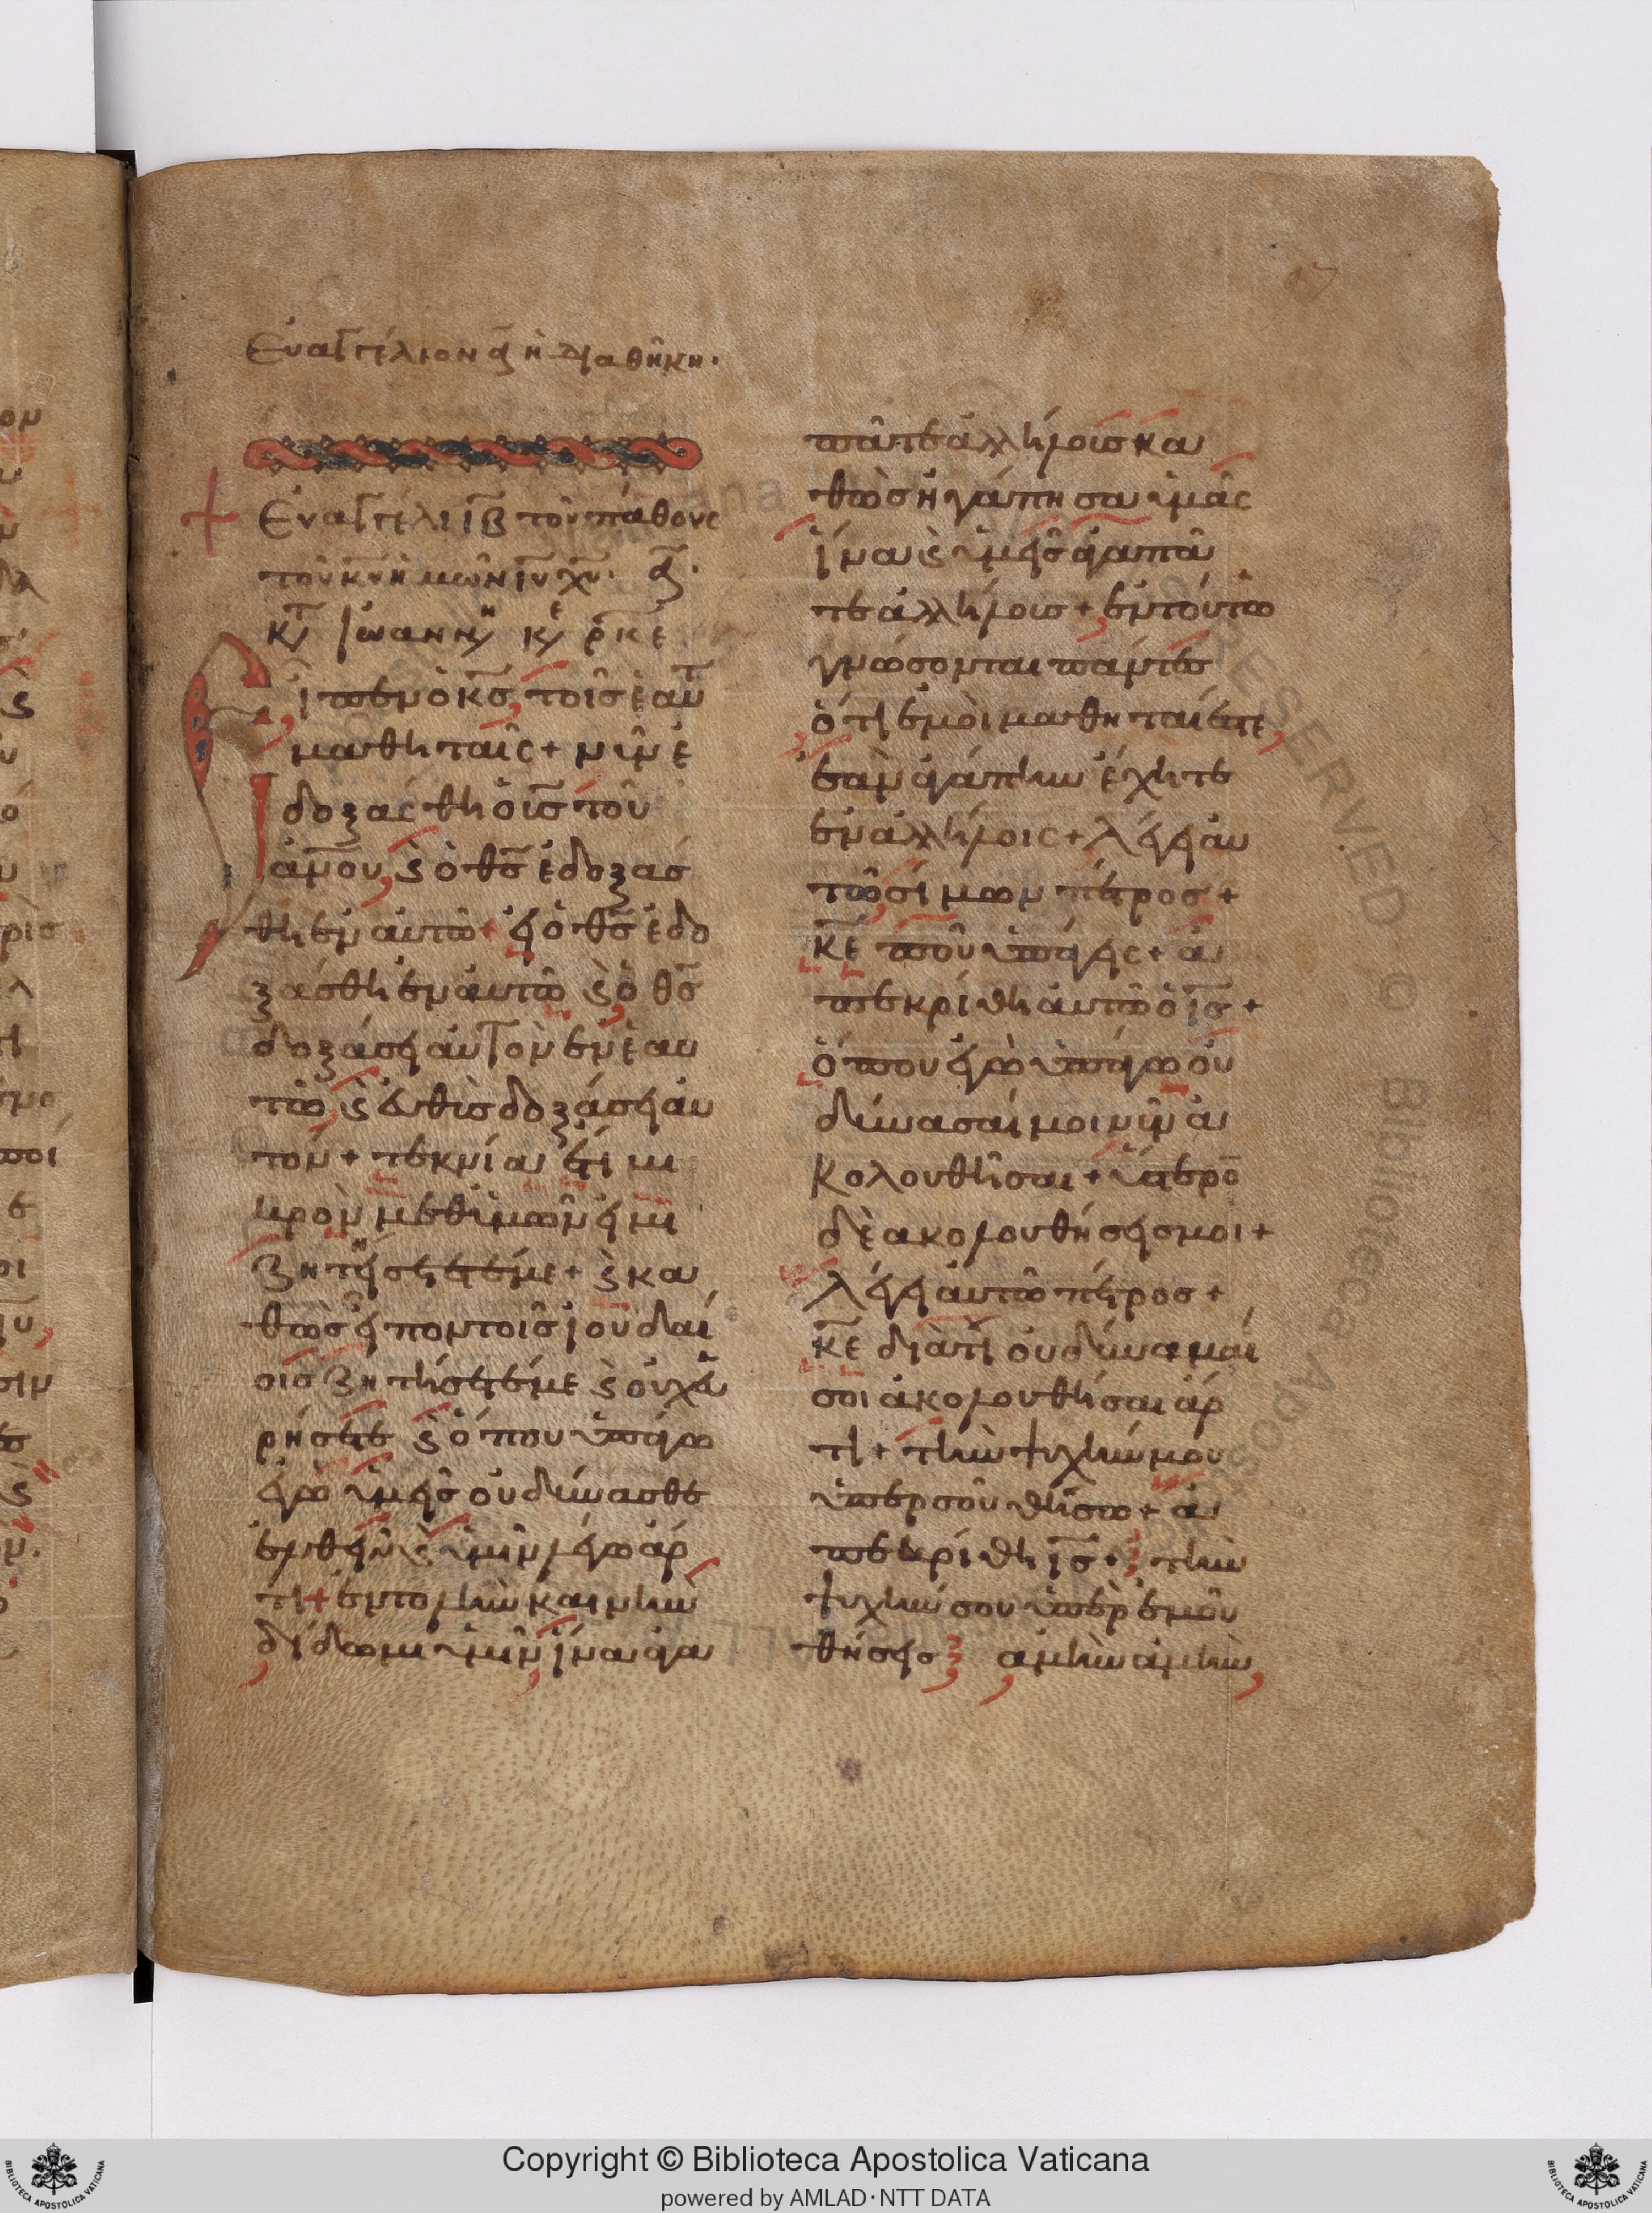 Εὐαγγέλιον α̅ ἡ διαθῆκη·
Εὐαγγέλι ιβ τοῦ πάθους
τοῦ κ̅υ̅ ἡμῶν ι̅υ̅ χ̅υ̅· α̅·
κτ ἰωαννην κε ρκε
Εἶπεν ὁ κ̅ς̅ τοῖς ἑαυτ
μαθηταῖς + νῦν ἐ
δοξάσθη ὁ υἱσ τοῦ
α̅ν̅ου, ϗ ὁ θ̅ς̅ ἐδοξάσ
θη ἐν αυτῶ + εἰ ὁ θ̅ς̅ ἐδο
ξάσθη ἐν ἀυτῶ ϗ ὁ θ̅ς̅
δοξάσει αυτὸν ἐν ἑαυ
τῶ, ϗ εὐθὶς δοξάσει αυ
τόν + τεκνία ἔτι μι
κρὸν μεθ ὑμῶν εἰμι
ζητήσετέ με + ϗ κα
θὼς εἶπον τοῖς ἰουδαί
οις ζητήσετέ με ϗ οὐχ ἑυ
ρήσετε ϗ ὁπου ὑπάγω
ἐγὼ ὑμεῖς οὐ δύνασθε
ἐλθεῖν ϗ ὑμῖν λέγω ἀρ
τι + ἐντολὴν καινὴν
δίδωμι ὑμῖν ἵνα ἀγα
πᾶτε ἀλλήλοις κα
θὼς ἠγάπησα ὑμᾶς
ἵνα ϗ ὑμεῖς ἀγαπᾶ
τε ἀλλήλοις + ἐν τούτω
γνώσονται πάντες
ὅτι ἐμοὶ μαθηταί ἐστε,
ἐὰν ἀγάπην ἔχητε
ἐν ἀλλήλοις + λέγει ἀυ
τῶ σίμων πέτρος +
κ̅ε̅ ποῦ ὑπάγεις + ἀ
πεκρίθη ἀυτῶ ὁ ι̅ς̅ +
ὅπου ἐγὼ ὑπάγω οὐ
δύνασαί μοι νῦν ἀ
κολουθῆσαι + ὕστερο̅
δὲ ακολουθήσεις μοι +
λέγει ἀυτῶ πέτρος +
κ̅ε̅ διὰ τί οὐ δύναμαί
σοι ἀκολουθήσαι ἀρ
τι + τὴν ψυχήν μου
ὑπερ σοῦ θήσω + ἀ
πεκρίθη ι̅ς̅ + τὴν
ψυχήν σου ὑπὲρ ἐμοῦ
θήσεις ἀμὴν ἀμὴν,
Copyright © Biblioteca Apostolica Vaticana
powered by AMLAD·NTT DATA